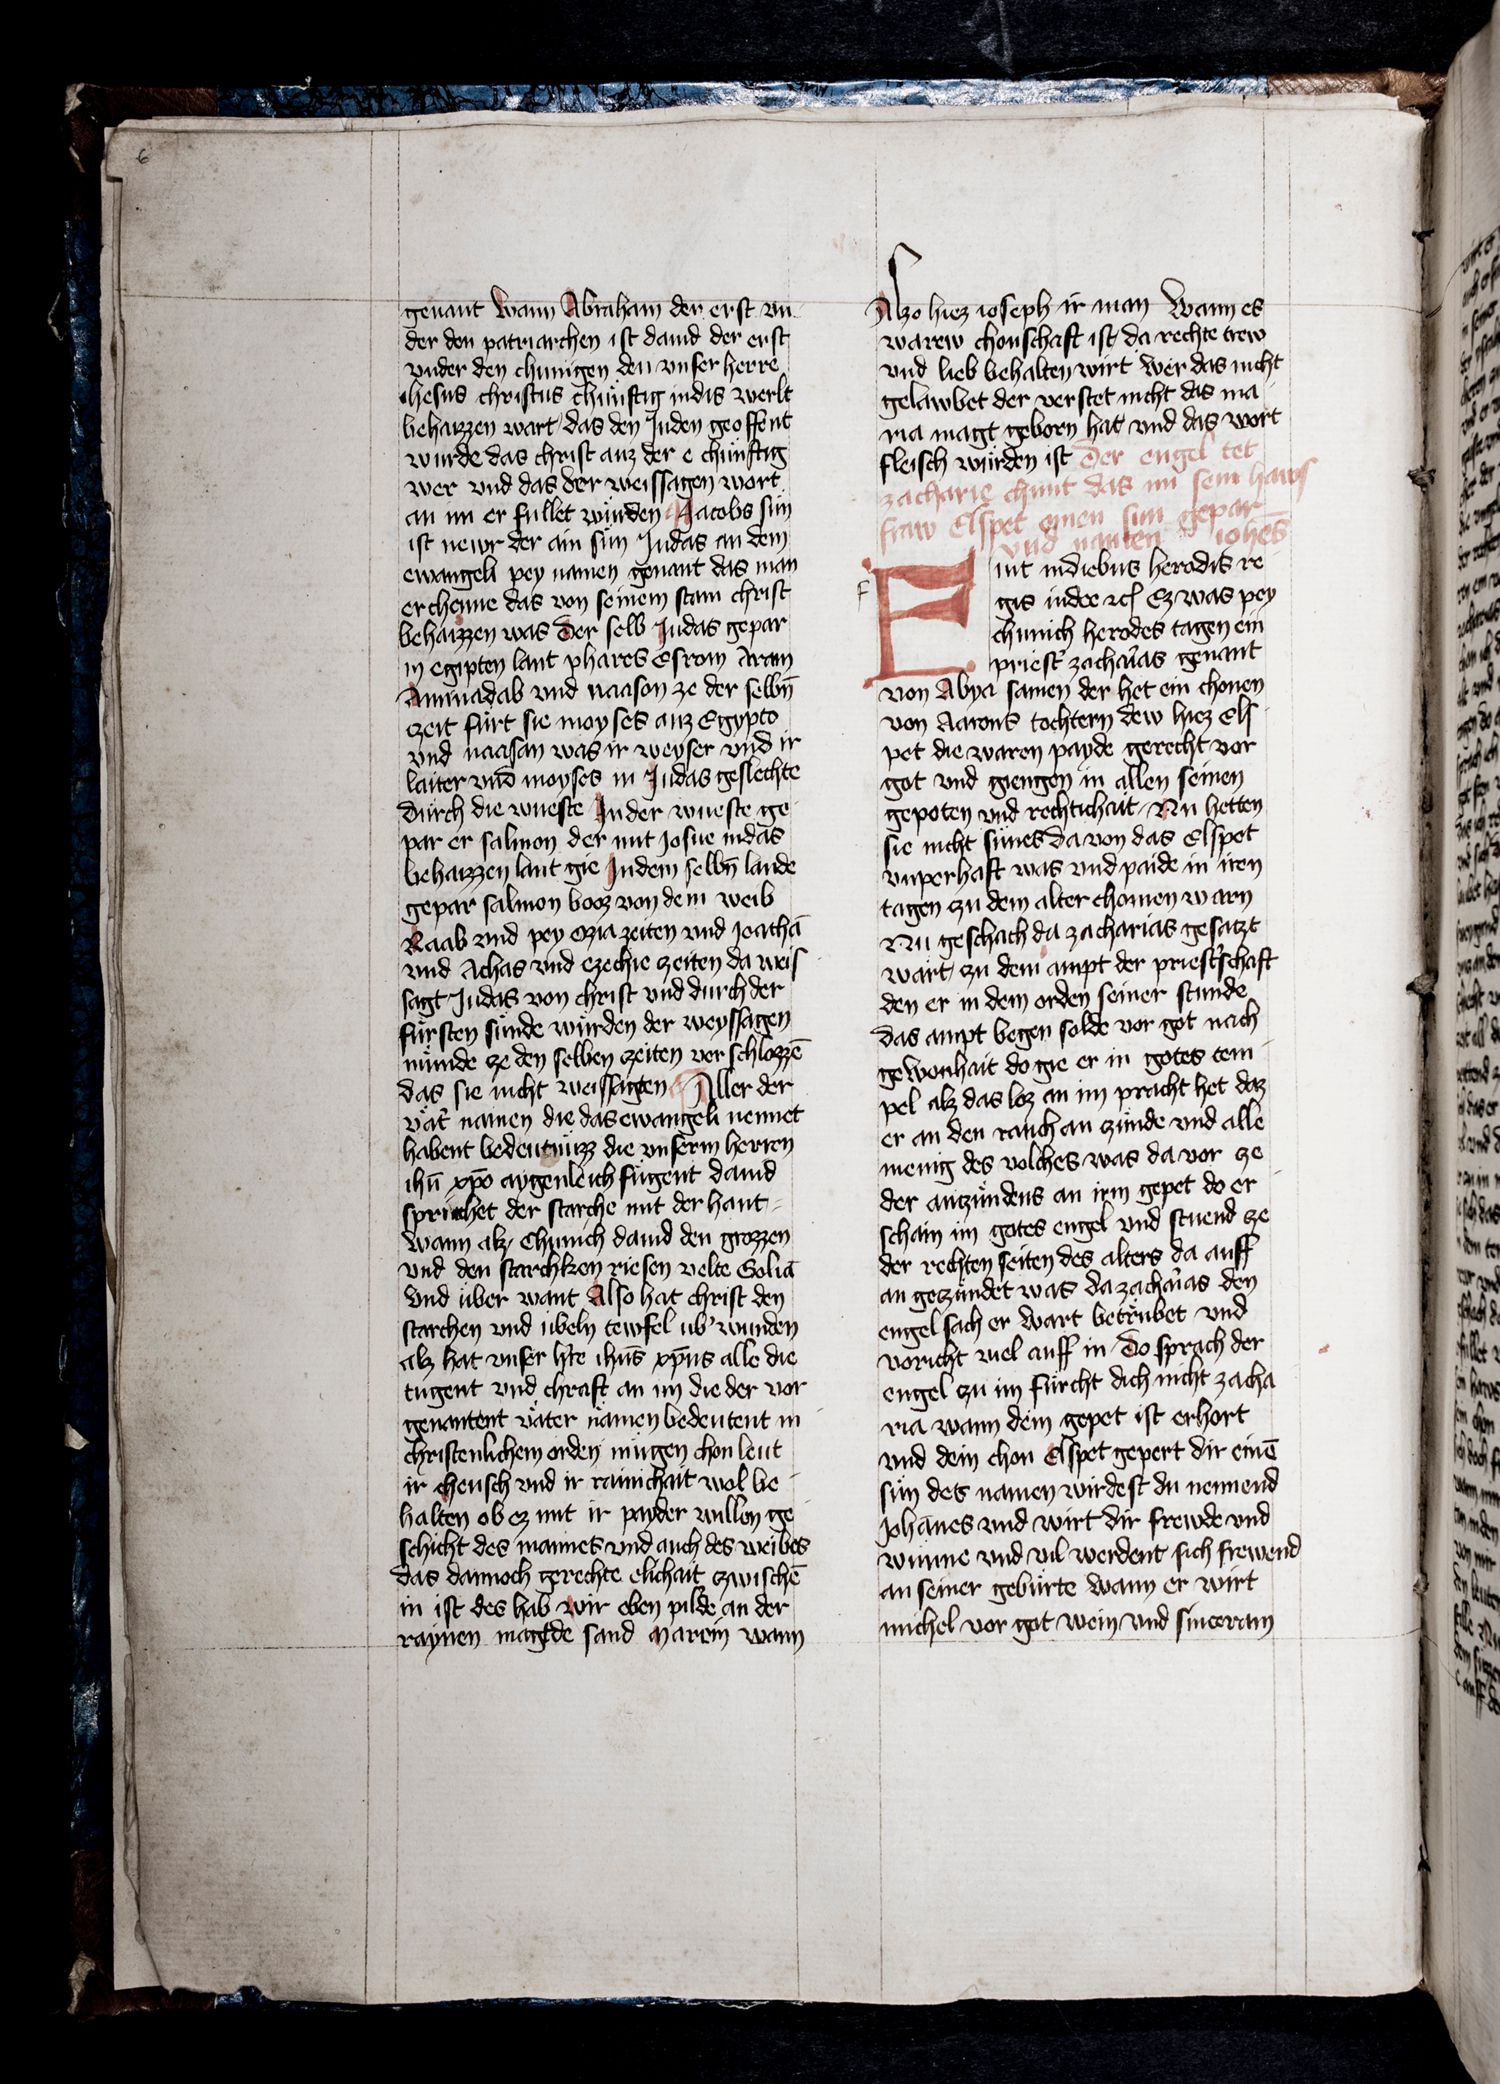 6
genant Wann Abraham der erst vn
der den patriarchen ist dauid der erst
vnder den chunigen den vnser herre
ihesus christus chünftig in dis werlt
behaizzen wart das den Juden geoffent
wurde das christ auz der e chünftig
wer vnd das der weissagen wort
an im er fullet würden Jacobs sün
ist newr der ain sün Judas an dem
ewangeli pey namen genant das man
erchenne das von seinem stam christ
behaizzen was Der selb Judas gepar
in egipten lant phares Esrom Aram
Aminadab vnd naason ze der selbn̄
zeit fürt sie moyses auz Egypto
vnd naasan was ir weyser vnd ir
laiter vnd moyses in Judas geslechte
durch die wueste In der wueste ge
par er salmon der mit Josue in das
behaizzen lant gie In dem selbn̄ lande
gepar salmon booz von dem weib
Raab vnd pey ozia zeiten vnd joathā
vnd Achas vnd ezechie zeiten da weis
sagt Judas von christ vnd durch der
fürsten sünde würden der weyssagen
münde ze den selben zeiten verschlozzē
das sie nicht weissagen Aller der
vät̄ namen die das ewangeli nennet
habent bedeutnüzz die vnserm herren
ihū xp̄o aygenleich fügent dauid
sprichet der starche mit der hant
wann alz Chunich dauid den grozzen
vnd den starchken riesen velte Goliā
vnd über want Also hat christ den
starchen vnd übeln tewfel ub' wunden
alz hat vnser h're ihūs xp̄us alle die
tugent vnd chraft an im die der vor
genantent väter namen bedeutent in
christenlichem orden mügen chonleut
ir cheusch vnd ir rainichait wol be
halten ob ez mit ir payder willen ge
schicht des mannes vnd auch des weibes
das dannoch gerechte elichait zwischē
in ist des hab wir eben pilde an der
raynen magtde sand Marein wann
Alzo hiez ioseph ir man Wann es
warew chonschaft ist da rechte trew
vnd lieb behalten wirt wer das nicht
gelawbet der verstet nicht das ma
ria magt geborn hat vnd das wort
fleisch würden ist Der engel tet
zacharie chunt das im sein haws
fraw Elspet einen sun gepar
vnd namen iohēs
f
E uit in diebus herodis re
gis iudee rcl Ez was pey
chunich herodes tagen ein
priest' zacharias genant
von Abya samen der het ein chonen
von Aarons tochtern dew hiez Els
pet die waren payde gerecht vor
got vnd giengen in allen seinen
gepoten vnd rechtichait Nu hetten
sie nicht sünes da von das Elspet
vnperhaft was vnd paide in iren
tagen zu dem alter chomen warn
Nu geschach da zacharias gesatzt
wart zu dem ampt der priest'schaft
den er in dem orden seiner stunde
das ampt begen solde vor got nach
gewonhait do gie er in gotes tem
pel alz das loz an im pracht het daz
er an den rauch an zünde vnd alle
menig des volches was da vor ze
der anzündens an irm gepet do er
schain im gotes engel vnd stuend ze
der rechten seiten des alters da auff
an gezündet was da zacharias den
engel sach er wart betrübet vnd
voricht viel auff in Do sprach der
engel zu im fürcht dich nicht zacha
ria wann dein gepet ist erhort
vnd dein chon Elspet gepert dir einē
sün des namen wirdest du nennend
Johānes vnd wirt dir frewde vnd
wünne vnd vil werdent sich frewend
an seiner gebürte wann er wirt
michel vor got wein vnd sinceram